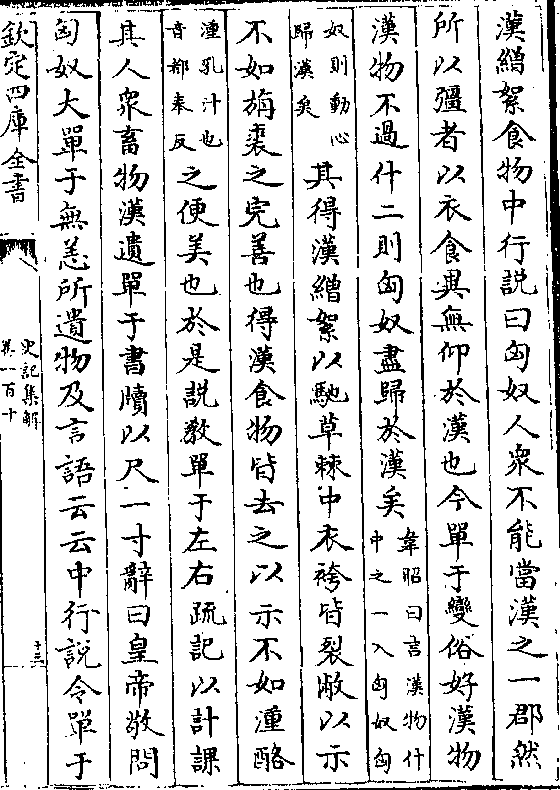 漢繒絮食物中行說曰匈奴人衆不能當漢之一郡然
所以彊者以衣食異無仰於漢也今單于變俗好漢物
漢物不過什二則匈奴盡歸於漢矣韋昭曰言漢物什
中之一入匈奴匈
奴則動心
歸漢矣其得漢繒絮以馳草棘中衣袴皆裂敝以示
不如旃裘之完善也得漢食物皆去之以示不如湩酪
湩乳汁也
音都奉反之便美也於是說教單于左右疏記以計課
其人衆畜物漢遺單于書牘以尺一寸辭曰皇帝敬問
匈奴大單于無恙所遺物及言語云云中行說令單于
欽定四庫全書
史記集解
卷一百十
十三